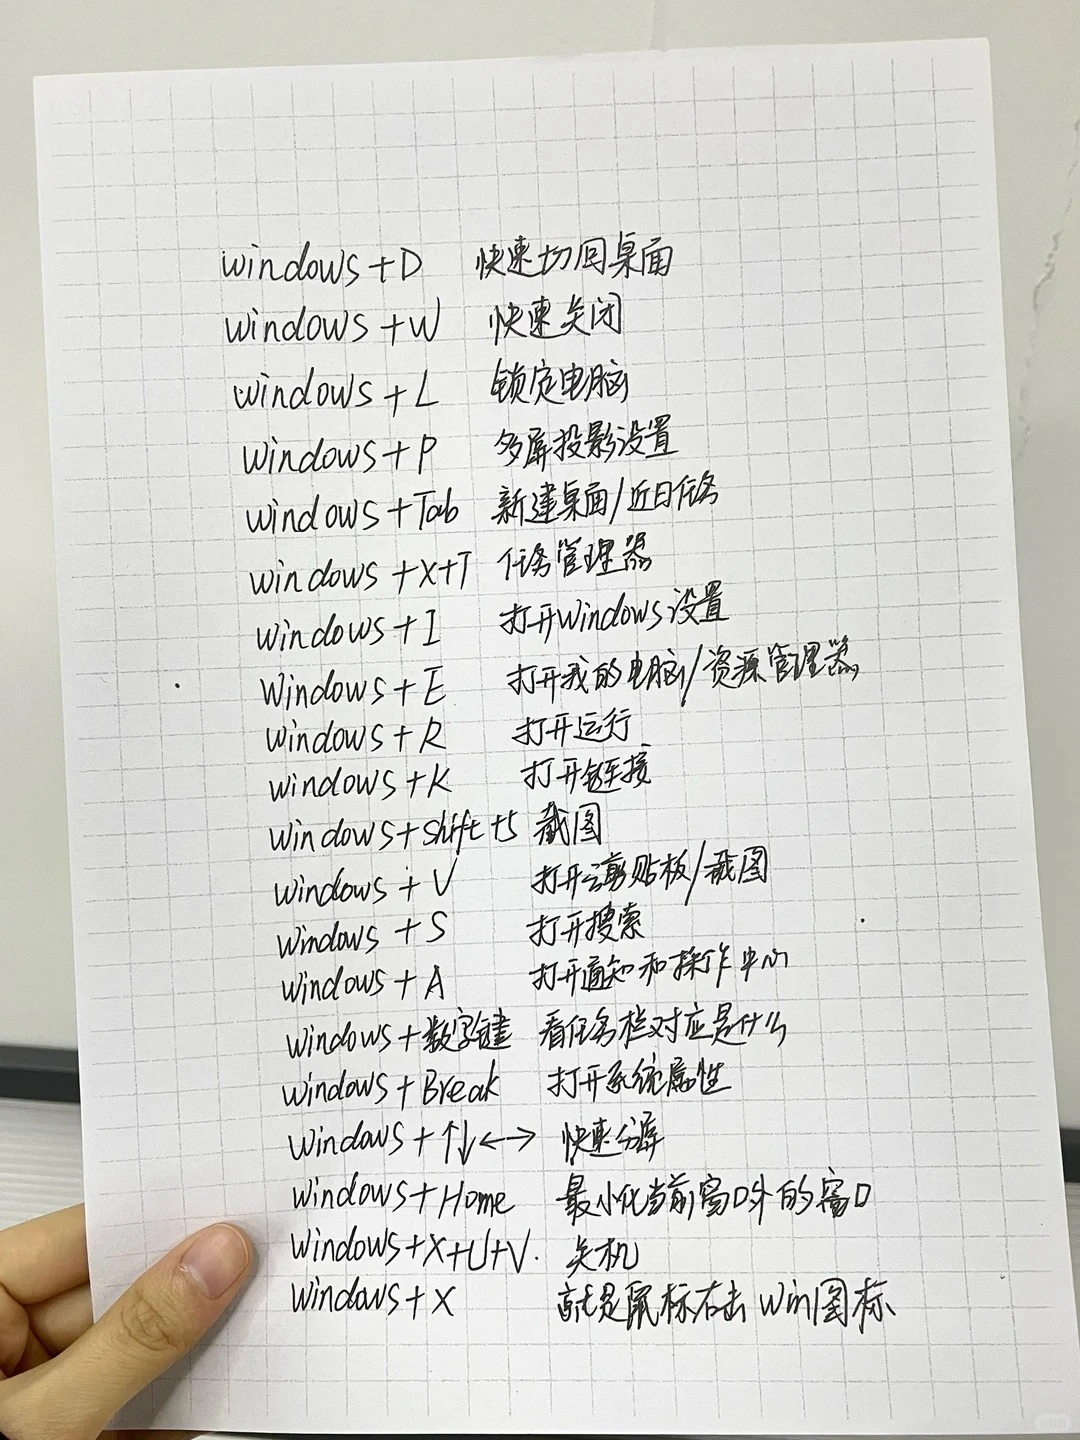 windows+D 快速切回桌面
windows+W 快速关闭
windows+L 锁定电脑
windows+P 多屏投影设置
windows+Tab 新建桌面/近日任务
windows+X+T 任务管理器
windows+I 打开windows设置
windows+E 打开我的电脑/资源管理器
windows+R 打开运行
windows+K 打开链接
windows+shift+S 截图
windows+V 打开云剪贴板/截图
windows+S 打开搜索
windows+A 打开通知和操作中心
windows+数字键 看任务栏对应是什么
windows+Break 打开系统属性
windows+↑↓←→ 快速分屏
windows+Home 最小化当前窗口外的窗口
windows+X+U+V. 关机
windows+X 就是鼠标右击win图标